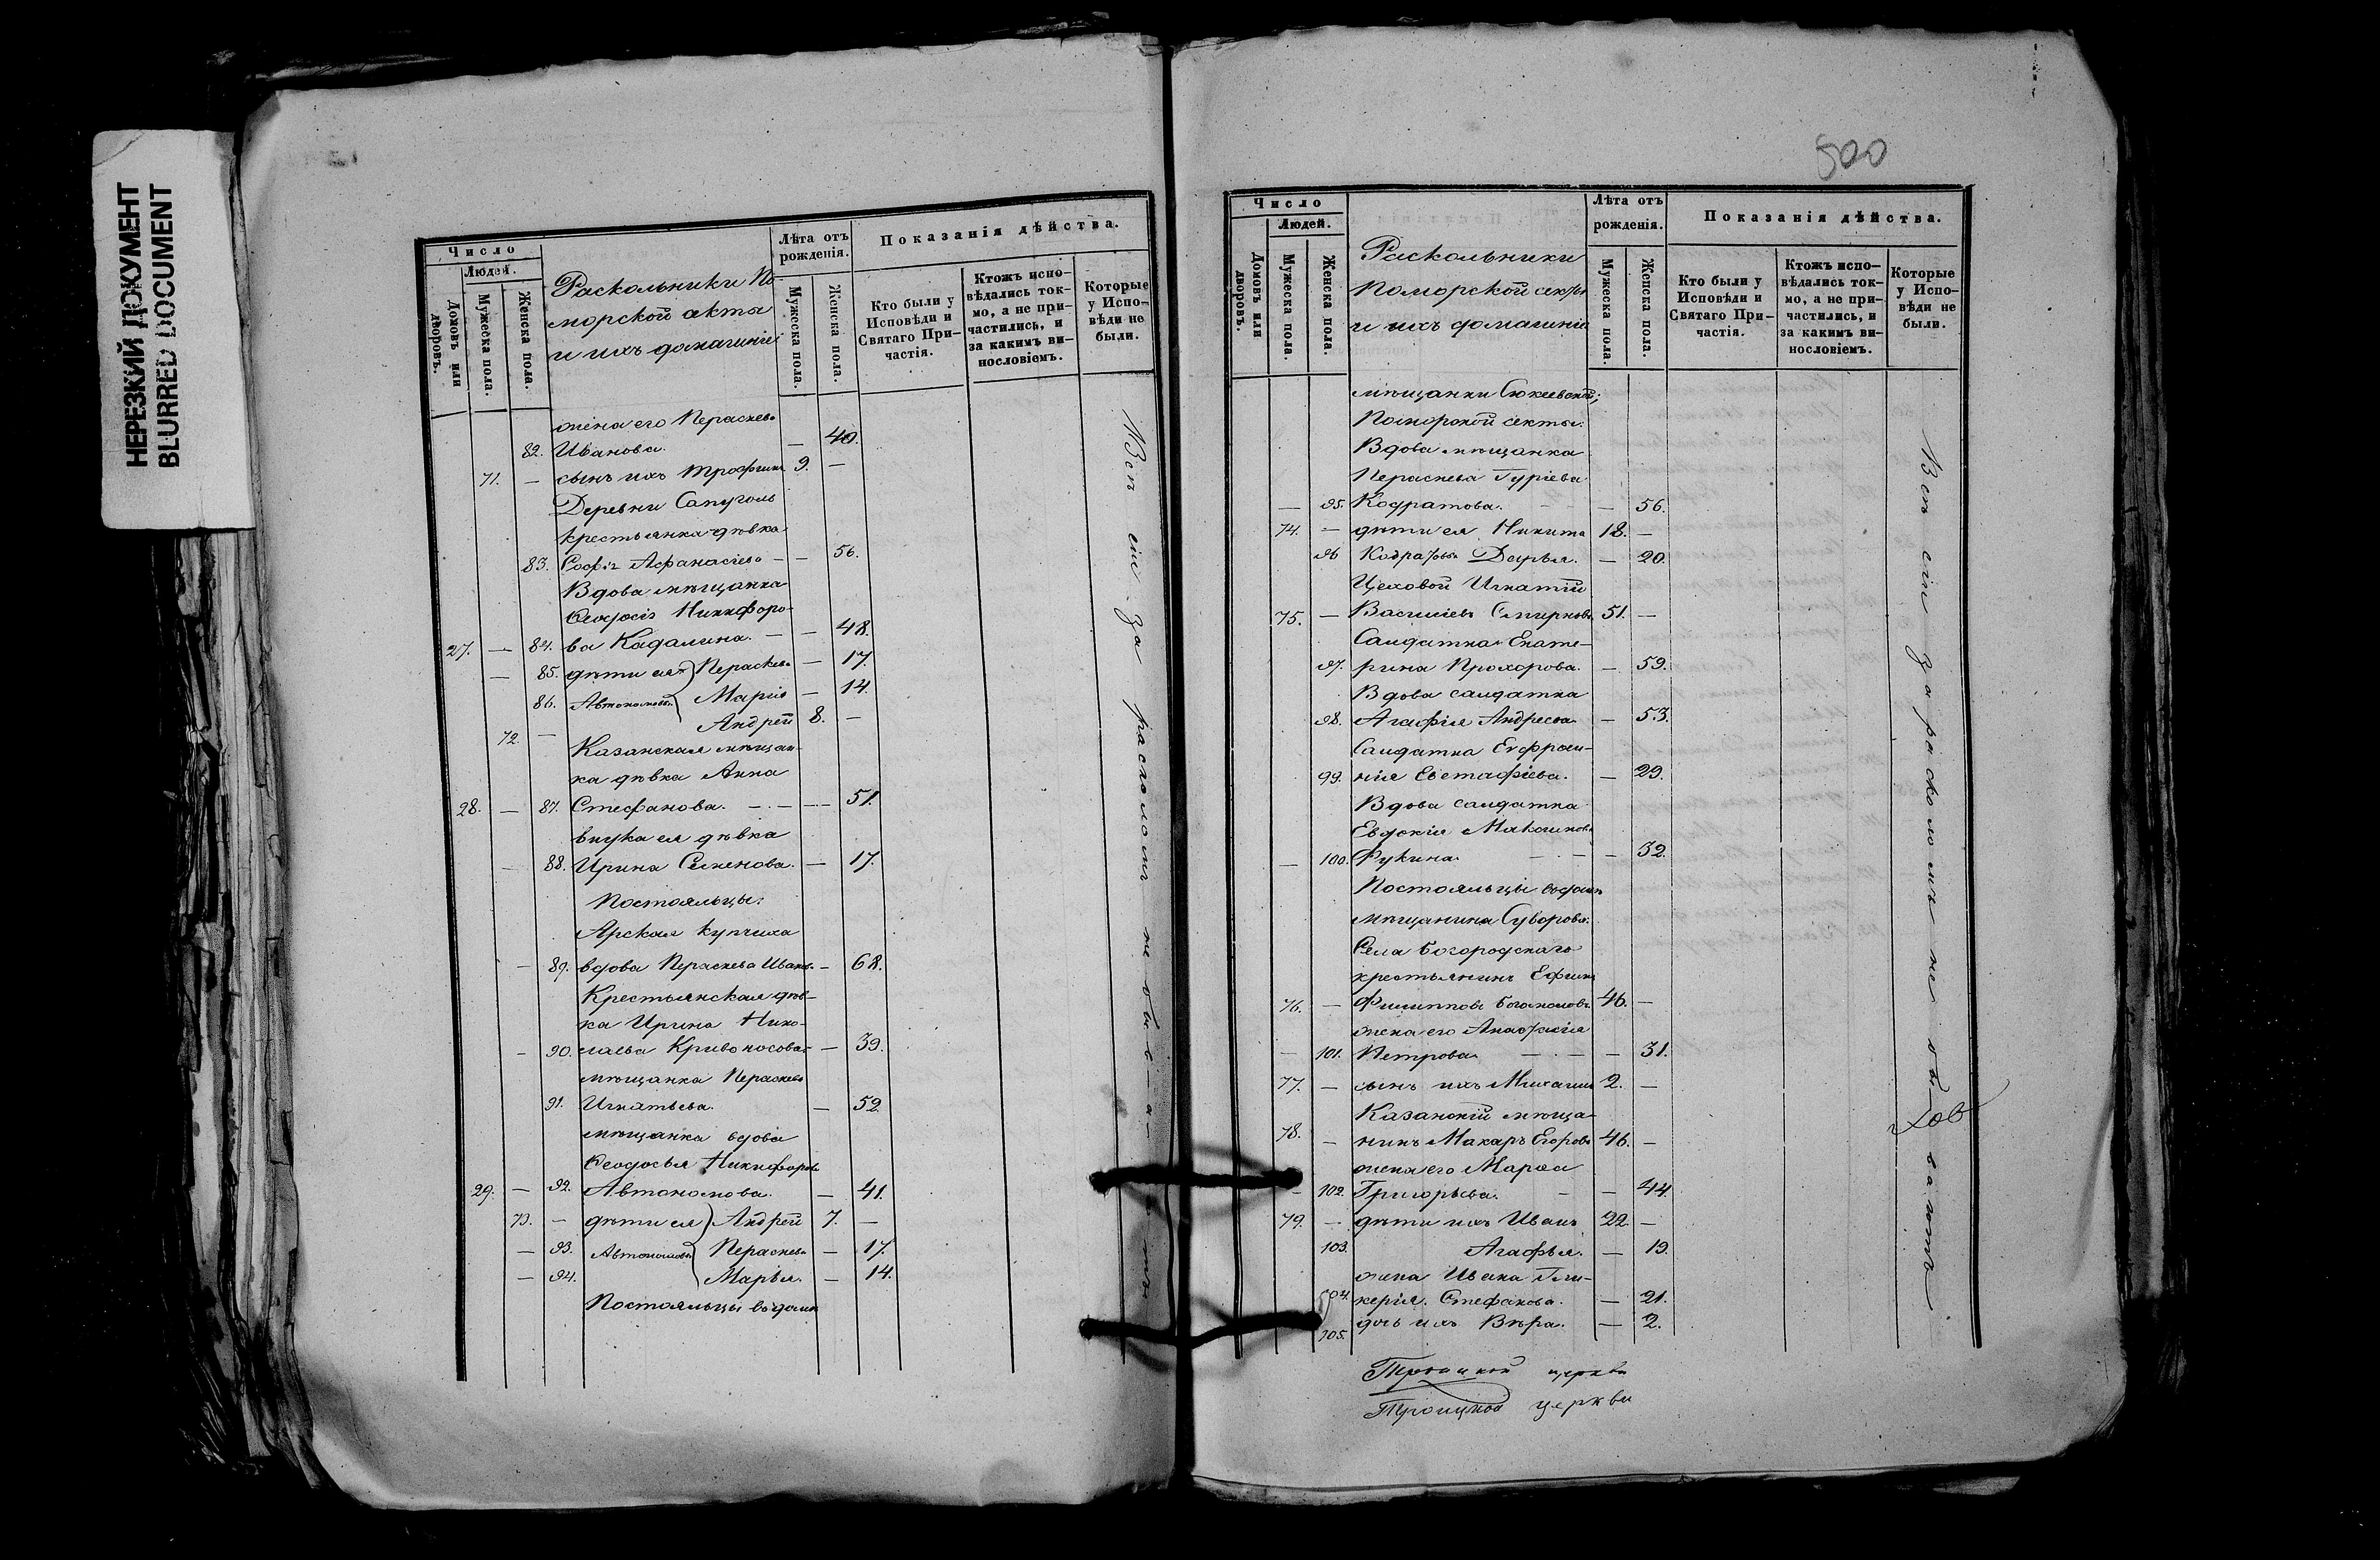 НЕРЕЗКИЙ ДОКУМЕНТ
BLURRED DOCUMENT
Число
Людей.
Домовъ или дворовъ.
Мужеска пола.
Женска пола.
Раскольники По-
морской секты
и ихъ домашніе
Лѣта отъ рожденія.
Мужеска пола.
Женска пола.
Показанія дѣйства.
Кто были у Исповѣди и Святаго При-частія.
Ктожъ испо-вѣдались ток-мо, а не при-частились, и за какимъ ви-нословіемъ.
Которые у Испо-вѣди не были.
жена его Параскева
82. Иванова. — 40.
71. — сынъ ихъ Трофимъ 9. —
Деревни Сапуголь
крестьянка дѣвка
83. Софія Афанасіева — — 56.
Вдова мѣщанка
Ѳеодосія Никифоро-
27. — 84. ва Кадалина. — — 48.
— 85. дѣти ея Параскева — 17.
86. Автономовы Марія — 14.
72. — Андрей 8. —
Казанская мѣщан-
ка дѣвка Анна
28. — 87. Стефанова. — — — 51.
внука ея дѣвка
— 88. Ирина Семенова. — 17.
Постояльцы:
Арская купчиха
— 89. вдова Параскева Иванова — 68.
Крестьянская дѣв-
ка Ирина Нико-
— 90. лаева Кривоносова — 39.
мѣщанка Параскева
91. Игнатьева. — 52.
мѣщанка вдова
Ѳеодосья Никифорова
29. — 92. Автономова. — 41.
73. — дѣти ея Андрей 7. —
— 93. Автономовы Параскева — 17.
— 94. Марья. — 14.
Постояльцы въ домѣ
Всѣ сіи за расколомъ не бываютъ
500
Число
Людей.
Домовъ или дворовъ.
Мужеска пола.
Женска пола.
Раскольники
поморской секты
и ихъ домашніе
Лѣта отъ рожденія.
Мужеска пола.
Женска пола.
Показанія дѣйства.
Кто были у Исповѣди и Святаго При-частія.
Ктожъ испо-вѣдались ток-мо, а не при-частились, и за какимъ ви-нословіемъ.
Которые у Испо-вѣди не были.
мѣщанки Сюкеевской;
Поморской секты:
Вдова мѣщанка
Параскева Гуріева
— 95. Кодратова. — 56.
74. — дѣти ея Никита 18. —
96 Кодратовы Дарья. — 20.
Цеховой Игнатій
75. — Васильевъ Смирновъ 51. —
Салдатка Екате-
97. рина Прохорова. — 59.
Вдова салдатка
98. Агафія Андреева — 53.
Салдатка Евфроси-
99. нія Евстафіева. — 29.
Вдова салдатка
Евдокія Максимова
— 100. Фукина. — — — 32.
Постояльцы въ домѣ
мѣщанина Суворова.
Села Богородскаго
крестьянинъ Ефимъ
76. — Филипповъ Богомоловъ 46. —
жена его Анастасія
— 101. Петрова. — — — 31.
77. — сынъ ихъ Михаилъ 2. —
Казанскій мѣща-
78. — нинъ Макаръ Егоровъ 46. —
жена его Марѳа
— 102. Григорьева. — — 44.
79. — дѣти ихъ Иванъ 22. —
103. Агафья. — 19.
жена Ивана Гли-
104. керія Стефанова. — 21.
105. дочь ихъ Вѣра. — 2.
Всѣ сіи за расколомъ не бываютъ
Троицкой церкви
Троицкой церкви